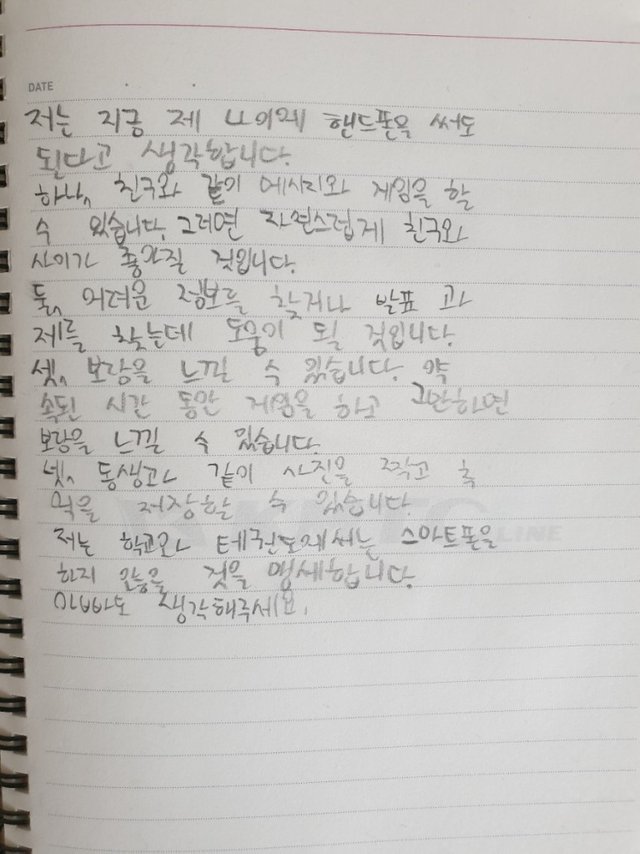 DATE
저는 지금 제 나이에 핸드폰을 써도
된다고 생각합니다.
하나, 친구와 같이 메시지와 게임을 할
수 있습니다. 그러면 자연스럽게 친구와
사이가 좋아질 것입니다.
둘, 어려운 정보를 찾거나 발표 과
제를 찾는데 도움이 될 것입니다.
셋, 보람을 느낄 수 있습니다. 약
속된 시간 동안 게임을 하고 그만하면
보람을 느낄 수 있습니다.
넷, 동생과 같이 사진을 찍고 추
억을 저장할 수 있습니다.
저는 학교와 테권도에서는 스마트폰을
하지 않을 것을 맹세합니다.
아빠도 생각해주세요.
LINE